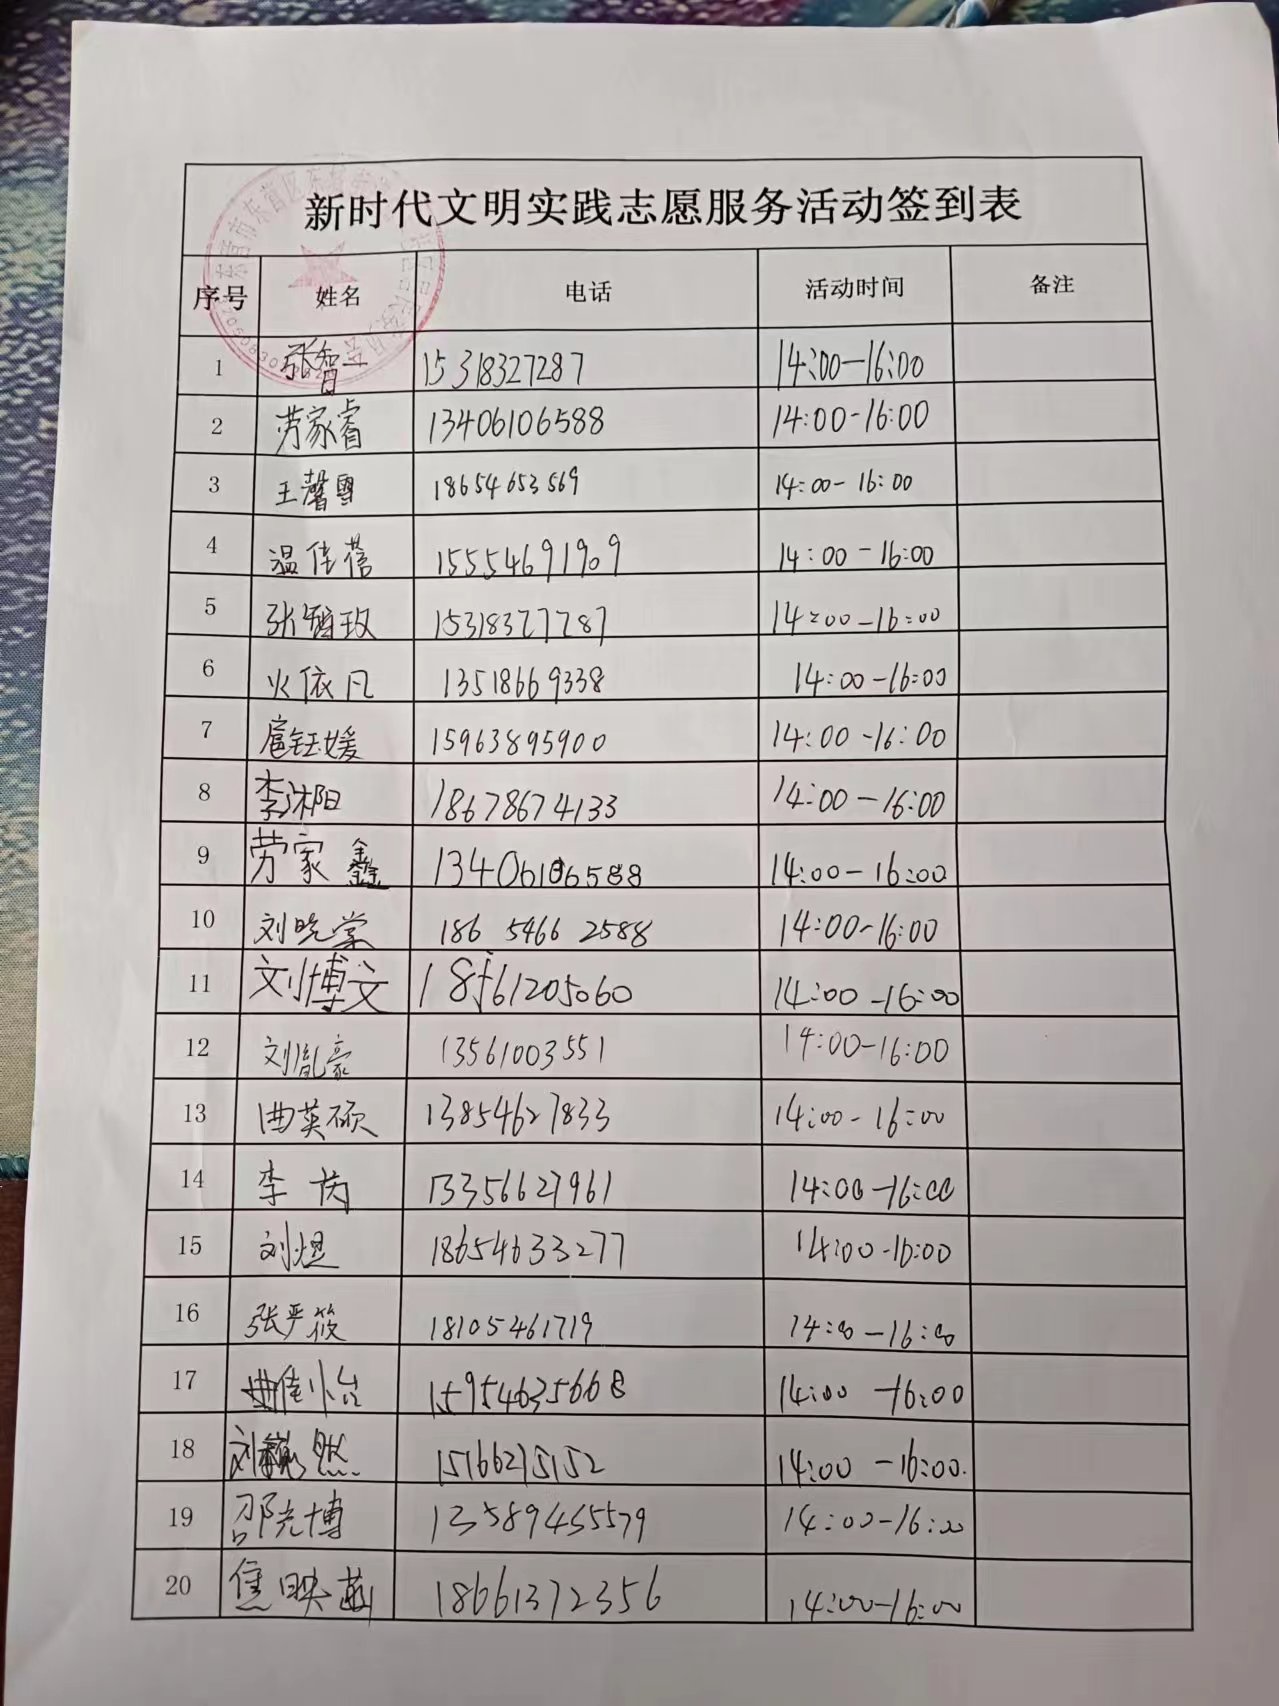 新时代文明实践志愿服务活动签到表
序号 姓名 电话 活动时间 备注
1 张智一 15318327287 14:00—16:00
2 劳家睿 13406106588 14:00-16:00
3 王馨 18654653569 14:00-16:00
4 温佳蓓 15554691909 14:00-16:00
5 张智玫 15318327287 14:00-16:00
6 火依凡 13518669338 14:00-16:00
7 扈钰媛 15963895900 14:00-16:00
8 李沐阳 18678674133 14:00-16:00
9 劳家鑫 13406106588 14:00-16:00
10 刘晓棠 186 5466 2588 14:00-16:00
11 刘博文 18561205060 14:00-16:00
12 刘胤豪 13561003551 14:00-16:00
13 曲英硕 13854627833 14:00-16:00
14 李芮 13356627961 14:00-16:00
15 刘煜 18654633277 14:00-16:00
16 张严筱 18105461719 14:00-16:00
17 曲佳怡 15954635668 14:00-16:00
18 刘然 15166215152 14:00-16:00.
19 邵光博 13589455579 14:00-16:00
20 焦映 18661372356 14:00-16:00